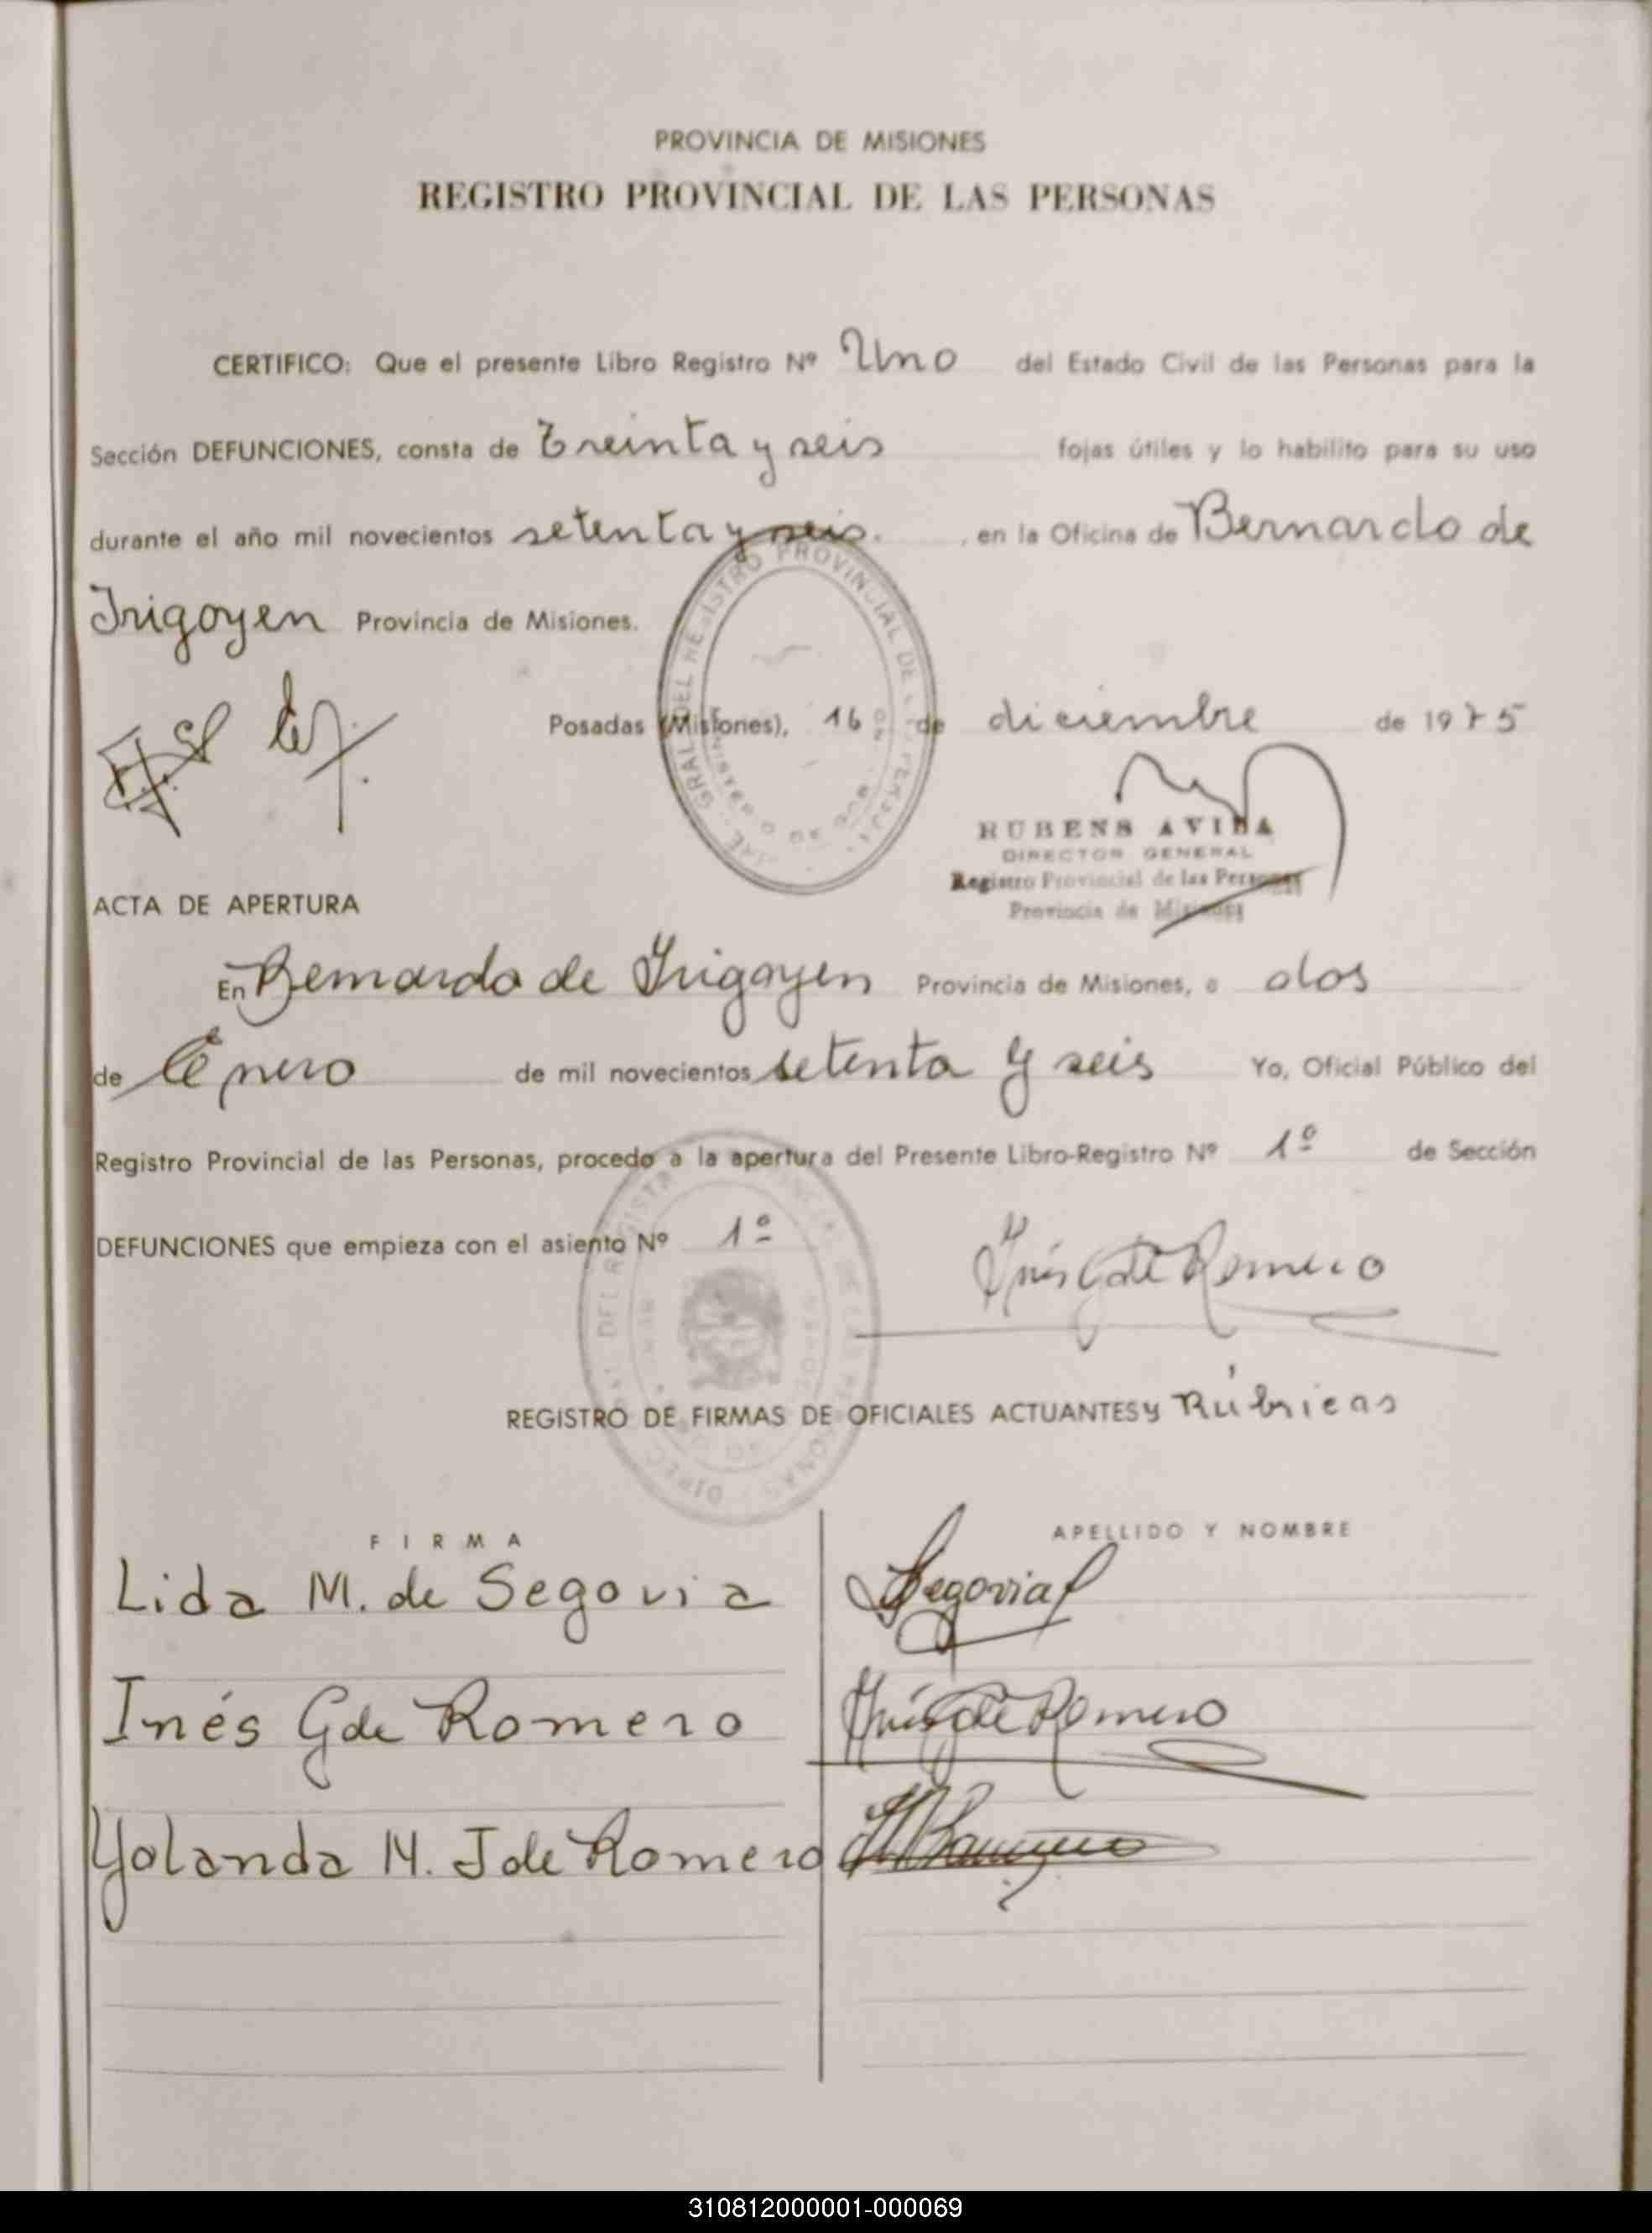 PROVINCIA DE MISIONES
REGISTRO PROVINCIAL DE LAS PERSONAS
CERTIFICO: Que el presente Libro Registro Nº Uno del Estado Civil de las Personas para la
Sección DEFUNCIONES, consta de Treinta y seis fojas útiles y lo habilito para su uso
durante el año mil novecientos setenta y seis. , en la Oficina de Bernardo de
Irigoyen Provincia de Misiones.
Posadas (Misiones), 16 de diciembre de 1975
RUBENS AVILA
DIRECTOR GENERAL
Registro Provincial de las Personas
Provincia de Misiones
ACTA DE APERTURA
En Bernardo de Irigoyen Provincia de Misiones, a dos
de Enero de mil novecientos setenta y seis Yo, Oficial Público del
Registro Provincial de las Personas, procedo a la apertura del Presente Libro-Registro Nº 1º de Sección
DEFUNCIONES que empieza con el asiento Nº 1º
Inés G de Romero
REGISTRO DE FIRMAS DE OFICIALES ACTUANTES y Rúbricas
FIRMA APELLIDO Y NOMBRE
Lida M. de Segovia Segovia
Inés G de Romero Inés G de Romero
Yolanda M. J de Romero
310812000001-000069